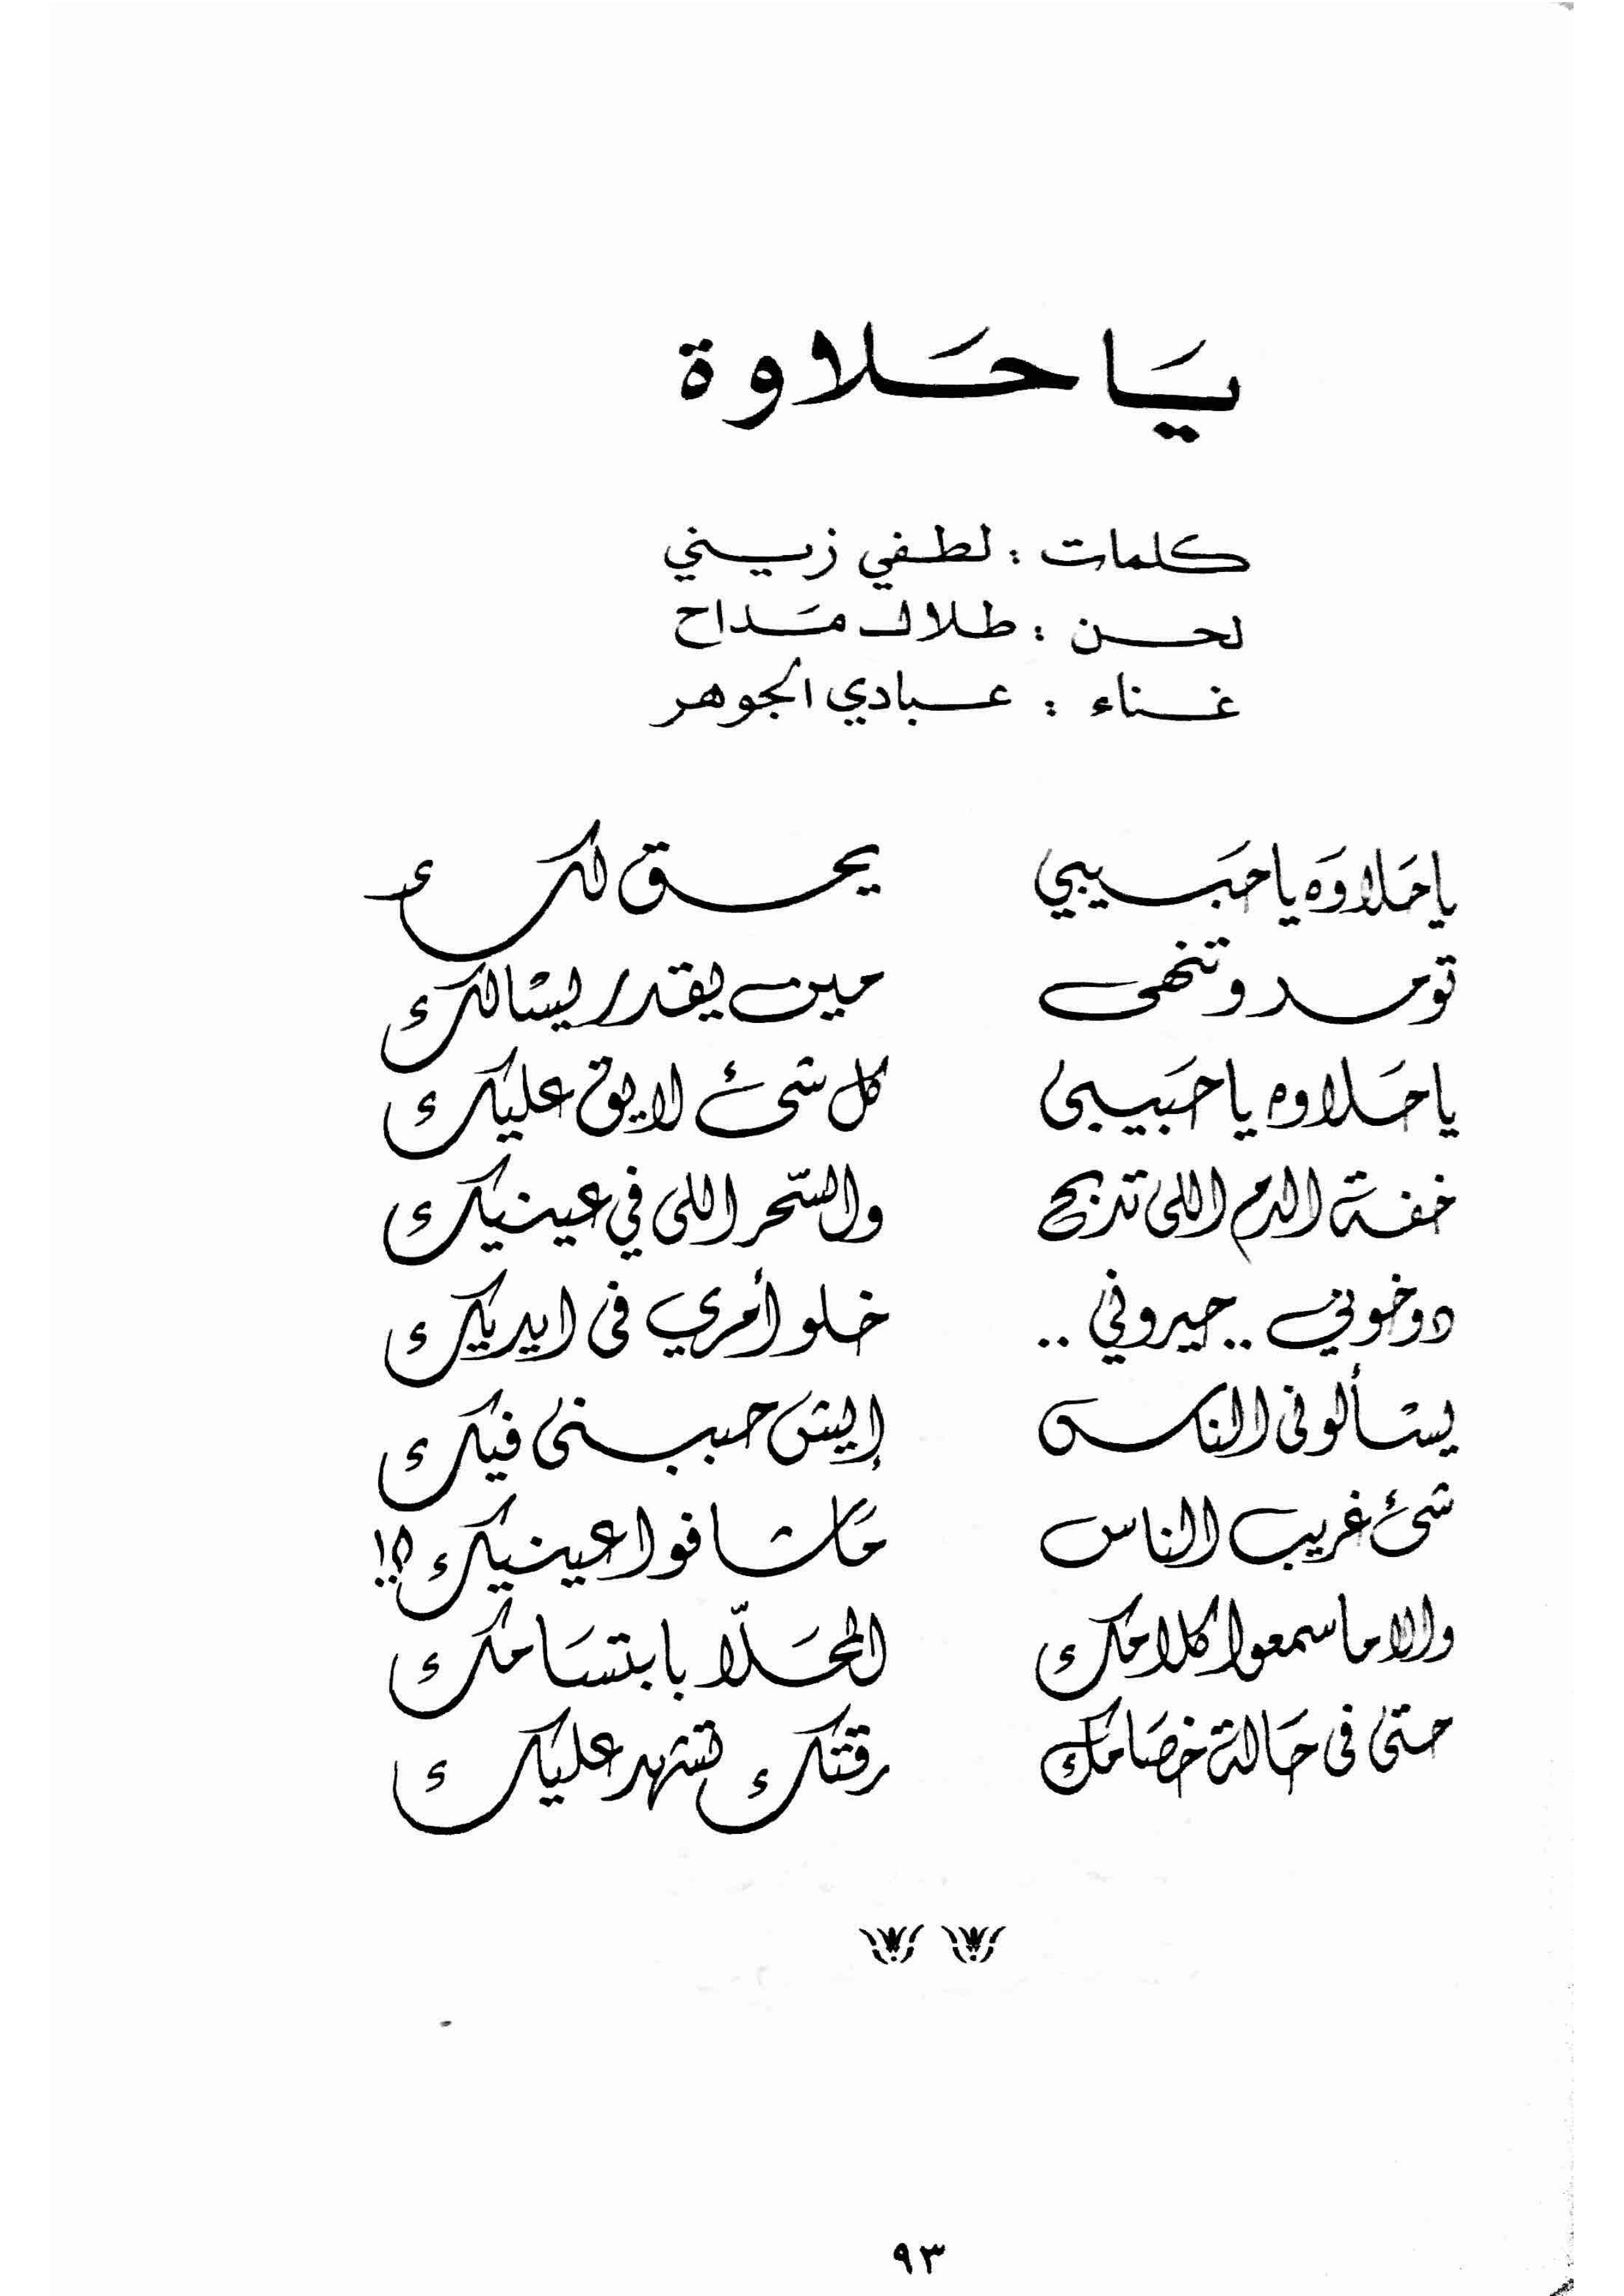 يَا حَلاوة
كلمات : لطفي زيني
لحن : طلال مَداح
غناء : عبادي الجوهر
ياحَلاوَه ياحَبيبي يحق لك
تومر وتنهى مين يقدر يسألك
ياحَلاوه ياحَبيبى كل شئ لايق عليك
خفة الدم اللى تدبح والسّحر اللى في عينيك
دوخوني .. حيروني .. خلو أمري فى ايديك
يسألونى الناس إيش حببنى فيك
شئ غريب الناس مَاشافوا عينيك !!
والا ماسمعوا كلامك المحَلّا بابتسَامك
حتى فى حَالة خصَامَك رقتك تشهد عليك
٩٣